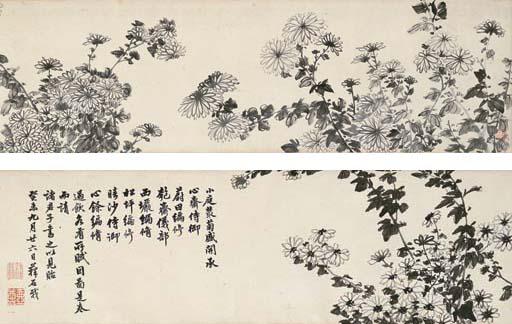 小庭叢菊盛開承
心齋侍御
蔚田編修
乾齋儀部
西編修
松坪編修
晴沙侍御
心餘編修
過飲各有所賦因圖是卷
而請
諸君子書之以見貽
癸未九月廿六日蘀石載